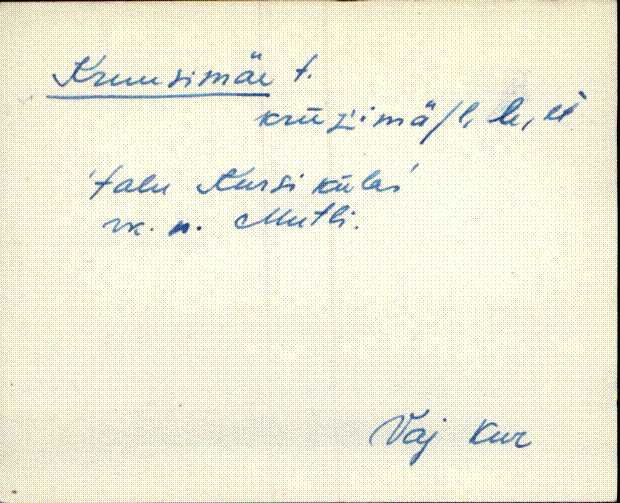 Kruusimäe t.
krūz'imä/l, le, lt
'talu Kursi külas'
rk. n. Mutli.
Vaj Kur